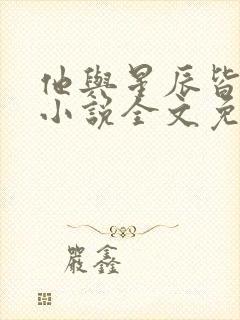 他與星辰皆
小説全文免
嚴鑫